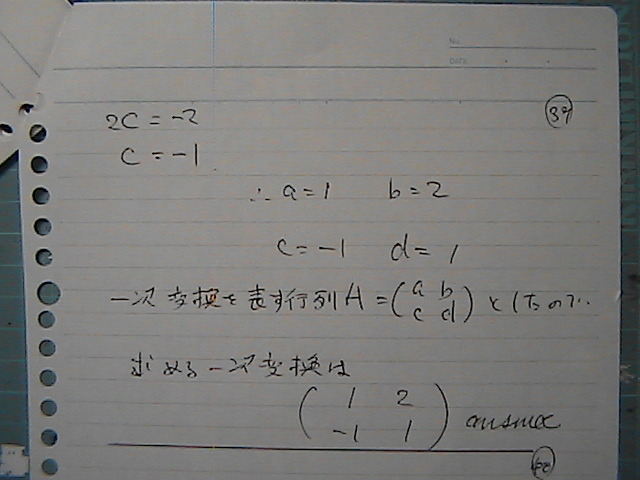 No.
DATE
37
2C = -2
C = -1
∴ a = 1 b = 2
c = -1 d = 1
一次変換を表す行列 A = (a b
c d) としたので..
求める一次変換は
( 1 2
-1 1 )